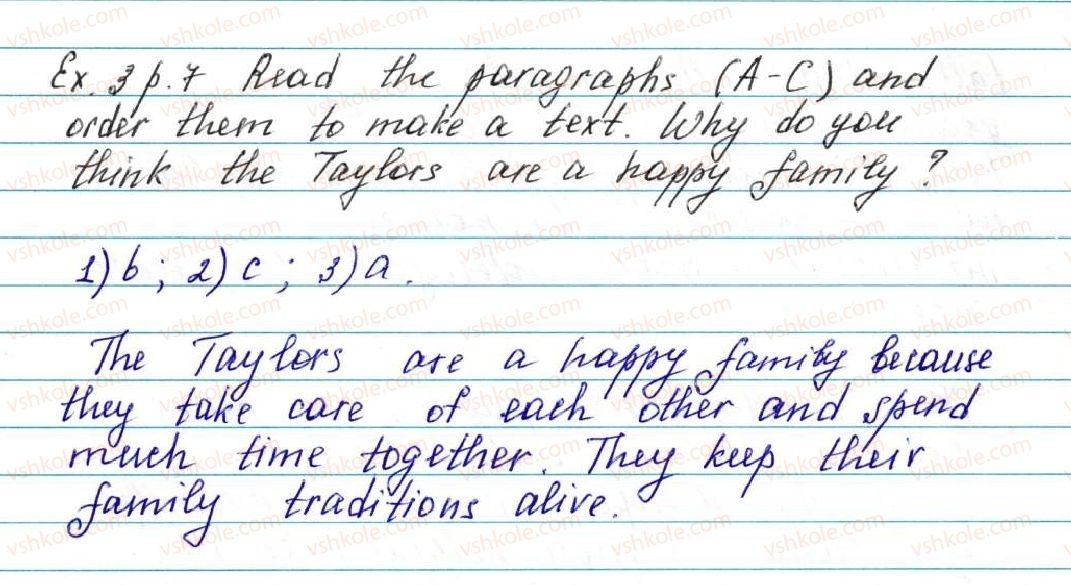 Ex. 3 p. 7 Read the paragraphs (A-C) and
order them to make a text. Why do you
think the Taylors are a happy family?
1) b; 2) c; 3) a.
The Taylors are a happy family because
they take care of each other and spend
much time together. They keep their
family traditions alive.